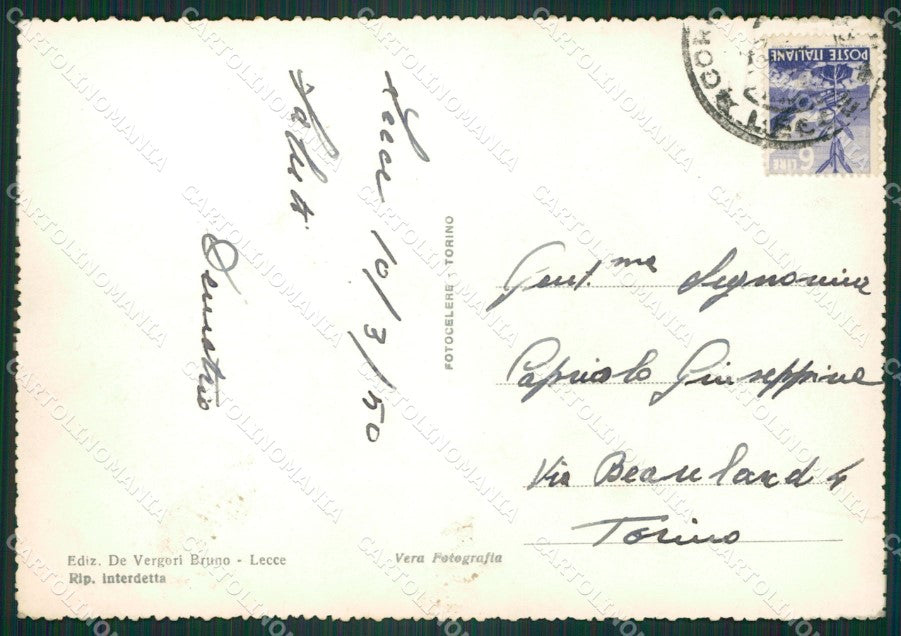 Lecce 10/3/50
Saluti
Demetrio
FOTOCELERE - TORINO
POSTE ITALIANE
LIRE 6
LECCE
Gent.ma Signorina
Capriolo Giuseppina
Via 4
Torino
Ediz. De Vergori Bruno - Lecce
Rip. interdetta
Vera Fotografia
CARTOLINOMANIA